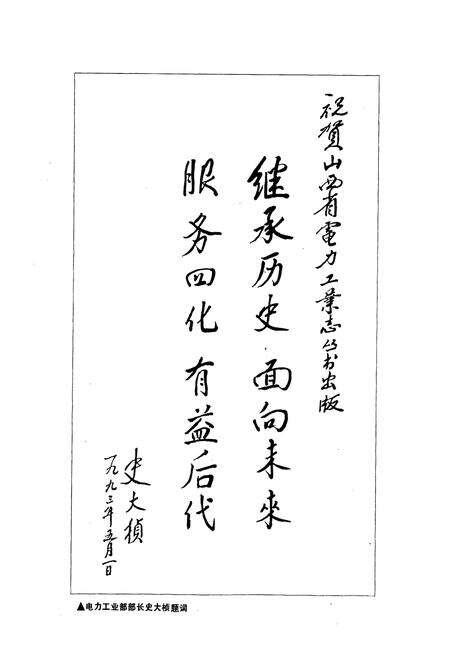 祝贺山西省電力工業志丛书出版
继承历史 面向未來
服务四化 有益后代
史大楨
一九九三年五月一日
▲电力工业部部长史大桢题词